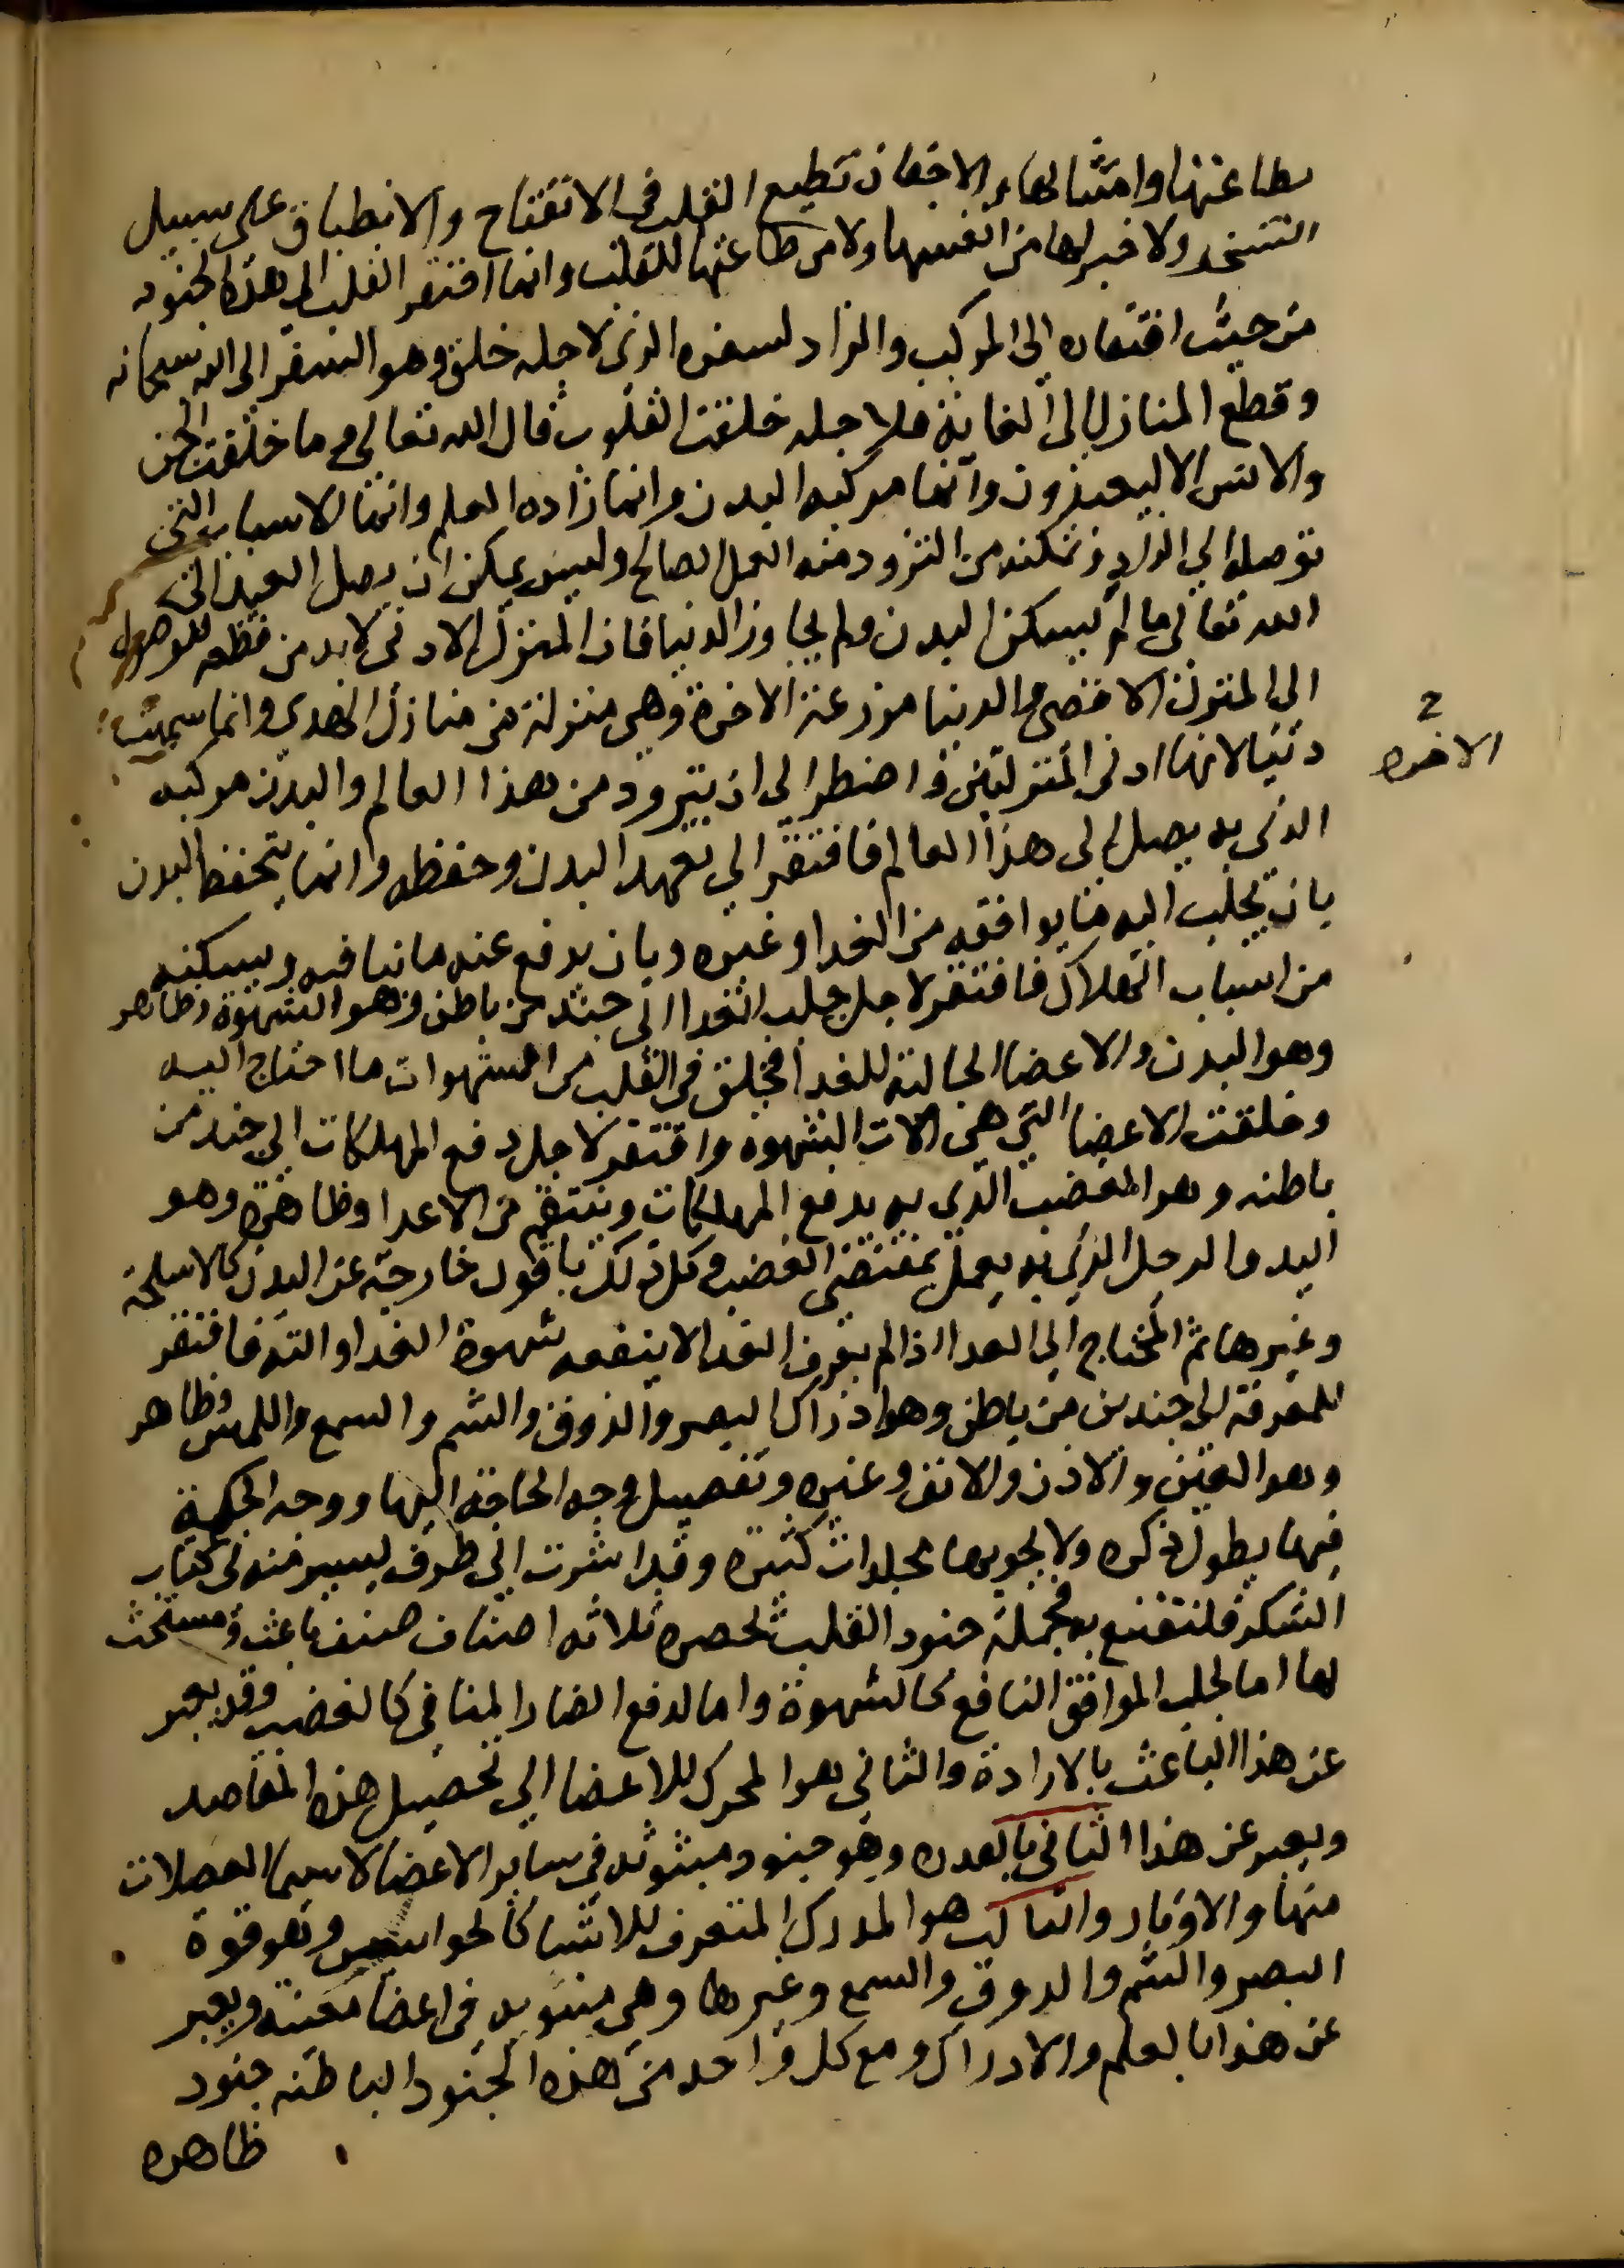 بطاعتها وامتثالها والاجفان تطيع القلب في الانفتاح والانطباق على سبيل
التسخير ولا خبر لها من انفسها ولا من طاعتها للقلب وانما افتقر القلب الى هذه الجنود
من حيث افتقاره الى المركب والزاد لسفره الذي لاجله خلق وهو السفر الى الله سبحانه
وقطع المنازل الى لقايه فلاجله خلقت القلوب قال الله تعالى وما خلقت الجن
والانس الا ليعبدون وانما مركبه البدن وانما زاده العلم وانما الاسباب التي
توصله الى الزاد وتمكنه من التزود منه العمل الصالح وليس يمكن ان يصل العبد الى
الله تعالى ما لم يسكن البدن ولم يجاوز الدنيا فان المنزل الادنى لا بد من قطعه للوصول
الى المنزل الاقصى والدنيا مزرعة الاخرة وهي منزلة من منازل الهدى وانما سميت
دنيا لانها ادنى المنزلتين فاضطر الى ان يتزود من هذا العالم والبدن مركبه
الاخره
الذي به يصل الى هذا العالم فافتقر الى تعهد البدن وحفظه وانما يتحفظ البدن
بان يجلب اليه ما يوافقه من الغدا وغيره وبان يدفع عنه ما ينافيه ويسكنه
من اسباب الهلاك فافتقر لاجل جلب الغدا الى جند من باطن وهو الشهوة وظاهر
وهو البدن والاعضا الجالبة للغدا فخلق في القلب من الشهوات ما احتاج اليه
وخلقت الاعضا التي هي الات الشهوة وافتقر لاجل دفع المهلكات الى جند من
باطنه وهو الغضب الذي به يدفع المهلكات وينتقم من الاعدا وظاهره وهو
اليد والرجل الذي به يعمل بمقتضى الغضب وكل ذلك بامور خارجة عن البدن كالاسلحة
وغيرها ثم المحتاج الى الغدا اذا لم يعرف الغدا لا ينفعه شهوة الغدا والته فافتقر
للمعرفة الى جندين من باطن وهو ادراك البصر والذوق والشم والسمع واللمس وظاهر
وهو العين والاذن والانف وغيره وتفصيل وجه الحاجة اليها ووجه الحكمة
فيها يطول ذكره ولا يحويها مجلدات كثيرة وقد اشرت الى طرف يسير منه في كتاب
الشكر فلنقتنع به فجملة جنود القلب تحصره ثلاثه اصناف صنف باعث ومستحث
لها اما لجلب الموافق النافع كالشهوة واما لدفع الضار المنافي كالغضب وقد يعبر
عن هذا الباعث بالارادة والثاني هو المحرك للاعضا الى تحصيل هذه المقاصد
ويعبر عن هذا الثاني بالقدره وهو جنود مبثوثه في ساير الاعضا لا سيما العضلات
منها والاوتار والثالث هو المدرك المتعرف للاشيا كالحواسيس وهو قوة
البصر والشم والدوق والسمع وغيرها وهي مبثوثه في اعضا معينه ويعبر
عن هذا بالعلم والادراك ومع كل واحد من هذه الجنود الباطنه جنود
ظاهره